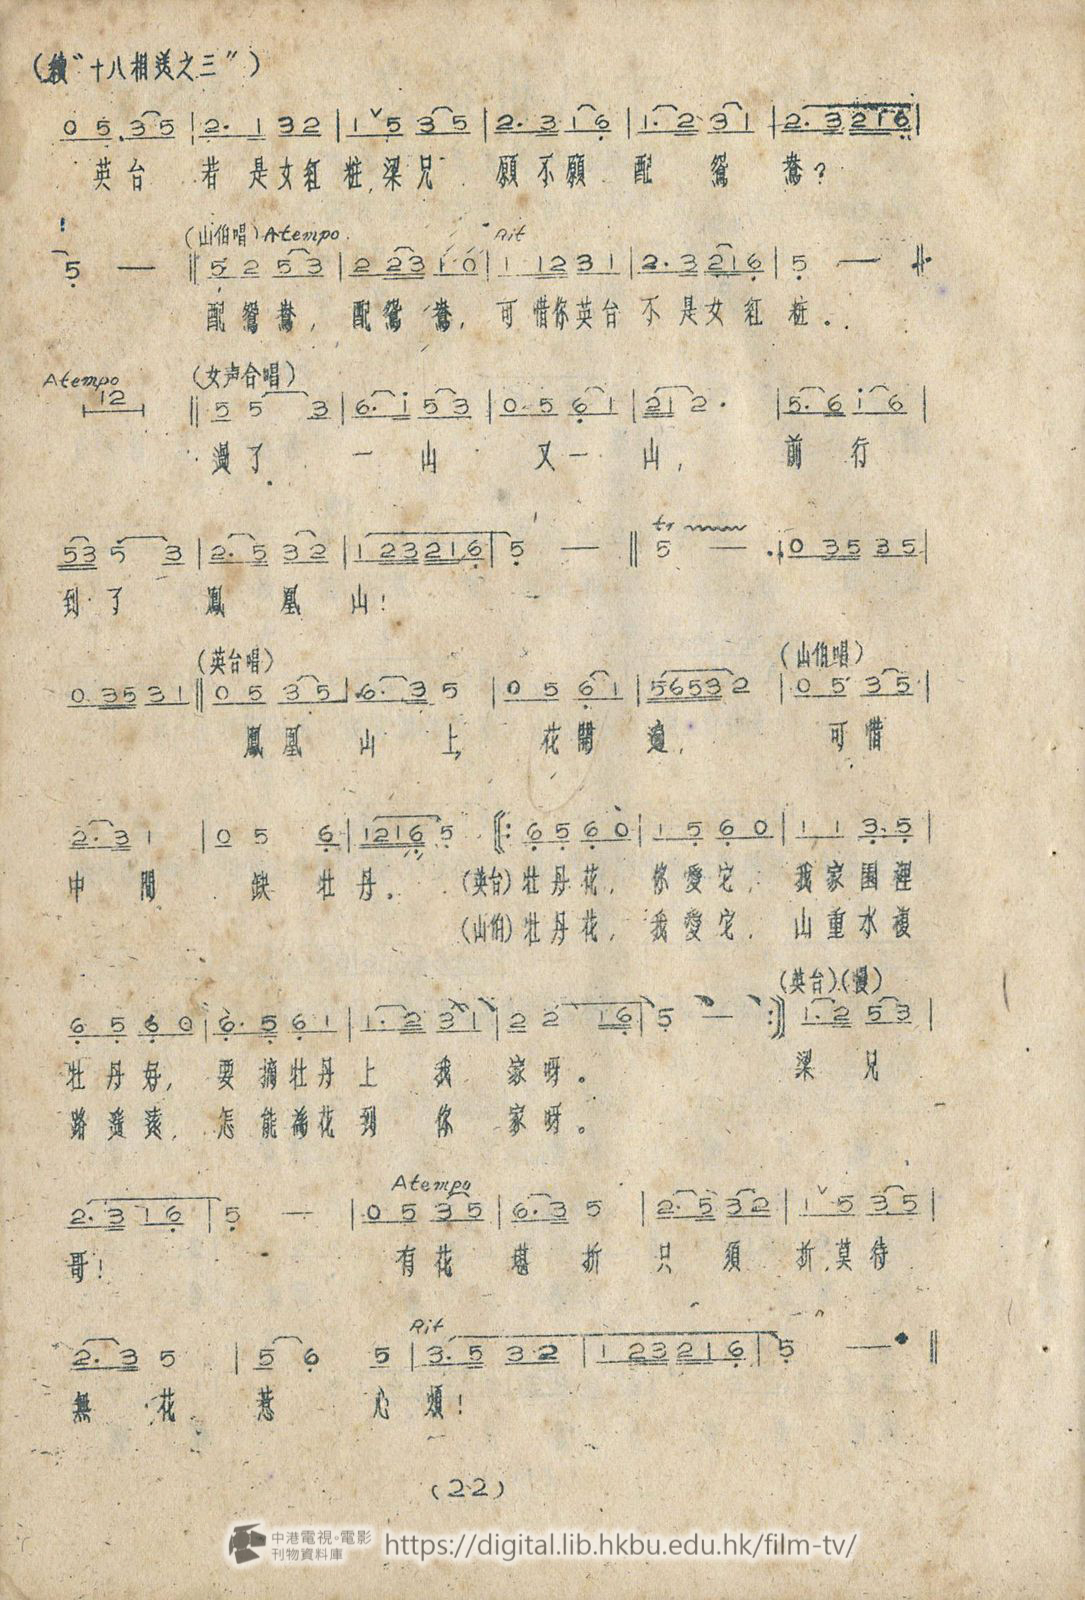 (續"十八相送之三")
0 5 3 5 | 2. 1 3 2 | 1 ˅ 5 3 5 | 2. 3 1 6 | 1. 2 3 1 | 2. 3 2 1 6 |
英台 若是女紅粧,梁兄 願不願 配鴛鴦?
(山伯唱) Atempo Rit
5 — || 5 2 5 3 | 2 2 3 1 0 | 1 1 2 3 1 | 2. 3 2 1 6 | 5 — ||
配鴛鴦, 配鴛鴦, 可惜你英台不是女紅粧.
Atempo (女声合唱)
12 || 5 5 3 | 6. i 5 3 | 0. 5 6 1 | 2 1 2 . | 5. 6 i 6 |
過了 一山 又一山, 前行
tr
5 3 5 3 | 2. 5 3 2 | 1 2 3 2 1 6 | 5 — || 5 — | 0 3 5 3 5 |
到了 鳳凰山!
(英台唱) (山伯唱)
0 3 5 3 1 || 0 5 3 5 | 6. 3 5 | 0 5 6 1 | 5 6 5 3 2 | 0 5 3 5 |
鳳凰山上, 花開遍, 可惜
2. 3 1 | 0 5 6 | 1 2 1 6 5 ‖: 6 5 6 0 | 1 5 6 0 | 1 1 3. 5 |
中間 缺牡丹。 (英台)牡丹花, 你愛它, 我家園裡
(山伯)牡丹花, 我愛它, 山重水複
(英台)(慢)
6 5 6 0 | 6. 5 6 1 | 1. 2 3 1 | 2 2 1 6 | 5 — :‖ 1. 2 5 3 |
牡丹好, 要摘牡丹上我家呀。 梁兄
路遙遠, 怎能為花到你家呀。
Atempo
2. 3 1 6 | 5 — | 0 5 3 5 | 6. 3 5 | 2. 5 3 2 | 1 ˅ 5 3 5 |
哥! 有花堪折只須折,莫待
Rit
2. 3 5 | 5 6 5 | 3. 5 3 2 | 1 2 3 2 1 6 | 5 — ||
無花惹心煩!
(22)
中港電視·電影
刊物資料庫
https://digital.lib.hkbu.edu.hk/film-tv/